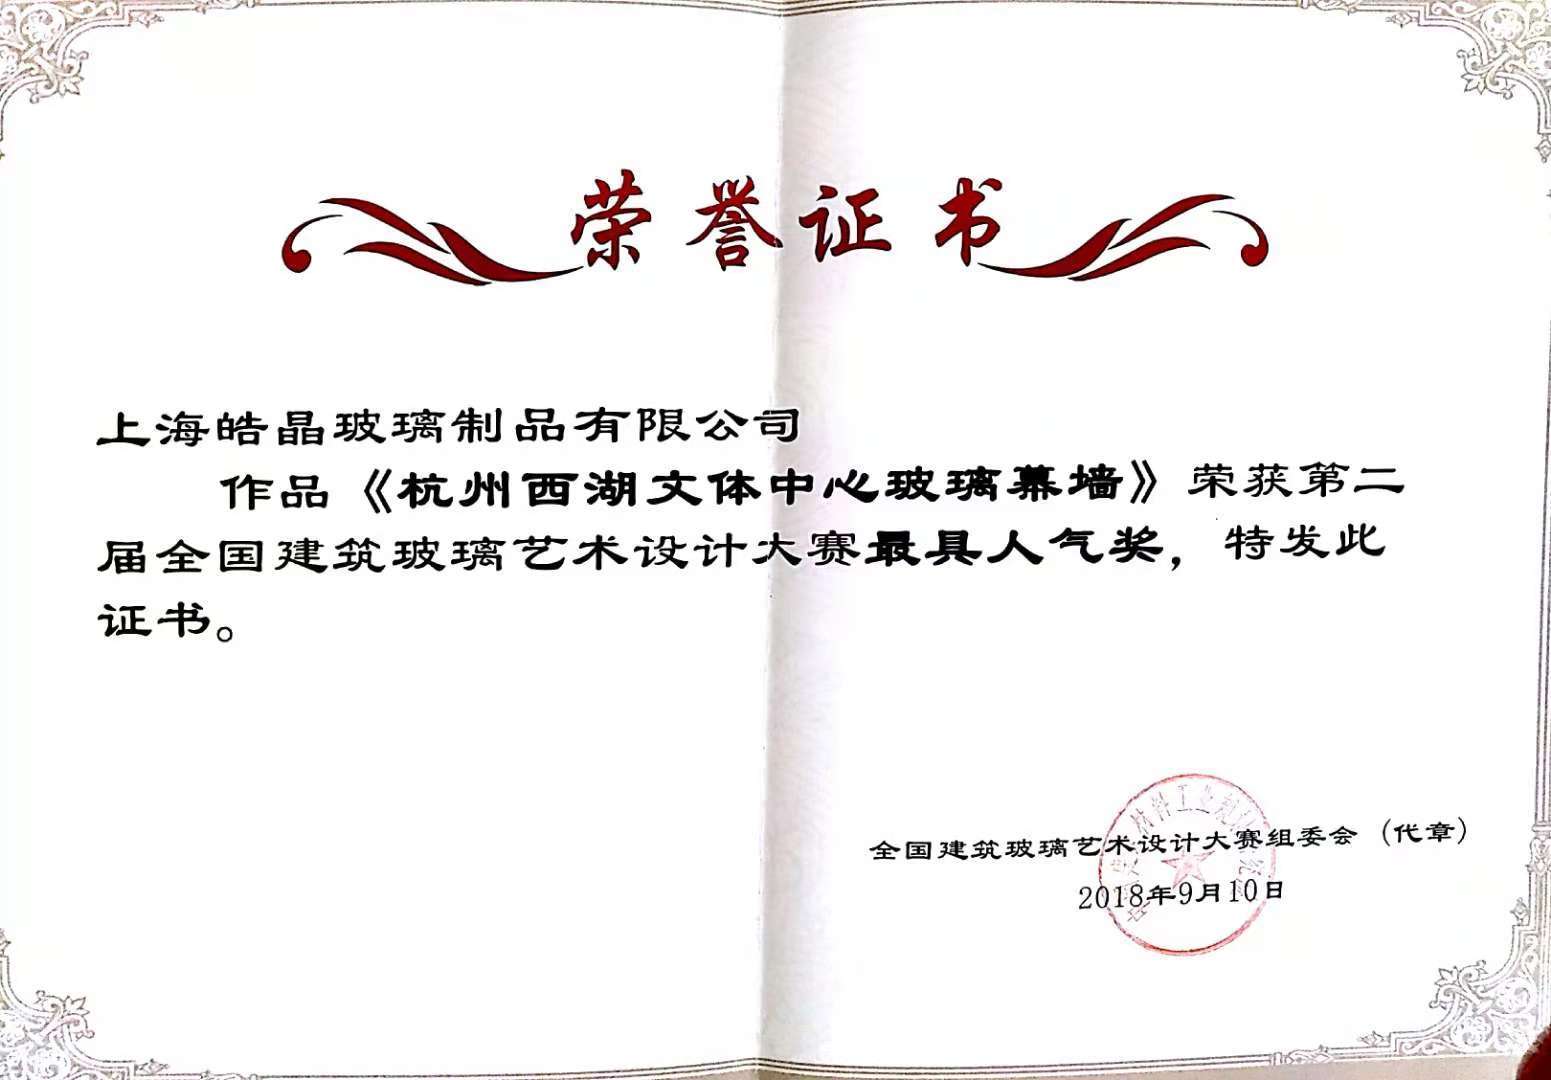 荣誉证书
上海皓晶玻璃制品有限公司
作品《杭州西湖文体中心玻璃幕墙》荣获第二
届全国建筑玻璃艺术设计大赛最具人气奖，特发此
证书。
全国建筑玻璃艺术设计大赛组委会（代章）
2018年9月10日